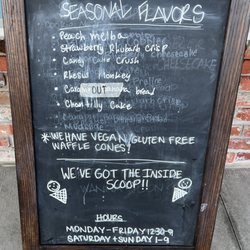 SEASONAL FLAVORS
• Peach melba
• Strawberry Rhubarb crisp
• Candy Cake Crush
• Monkey
• OUT bread
• Cake
*WE HAVE VEGAN/GLUTEN FREE
WAFFLE CONES!
WE'VE GOT THE INSIDE
SCOOP!!
HOURS
MONDAY-FRIDAY 12:30-9
SATURDAY + SUNDAY 1-9